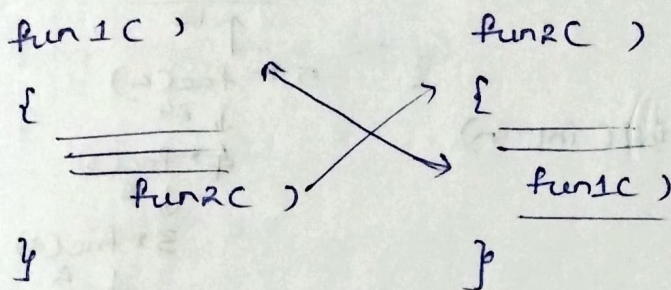 fun1( )
{
fun2( )
}
fun2( )
{
fun1( )
}